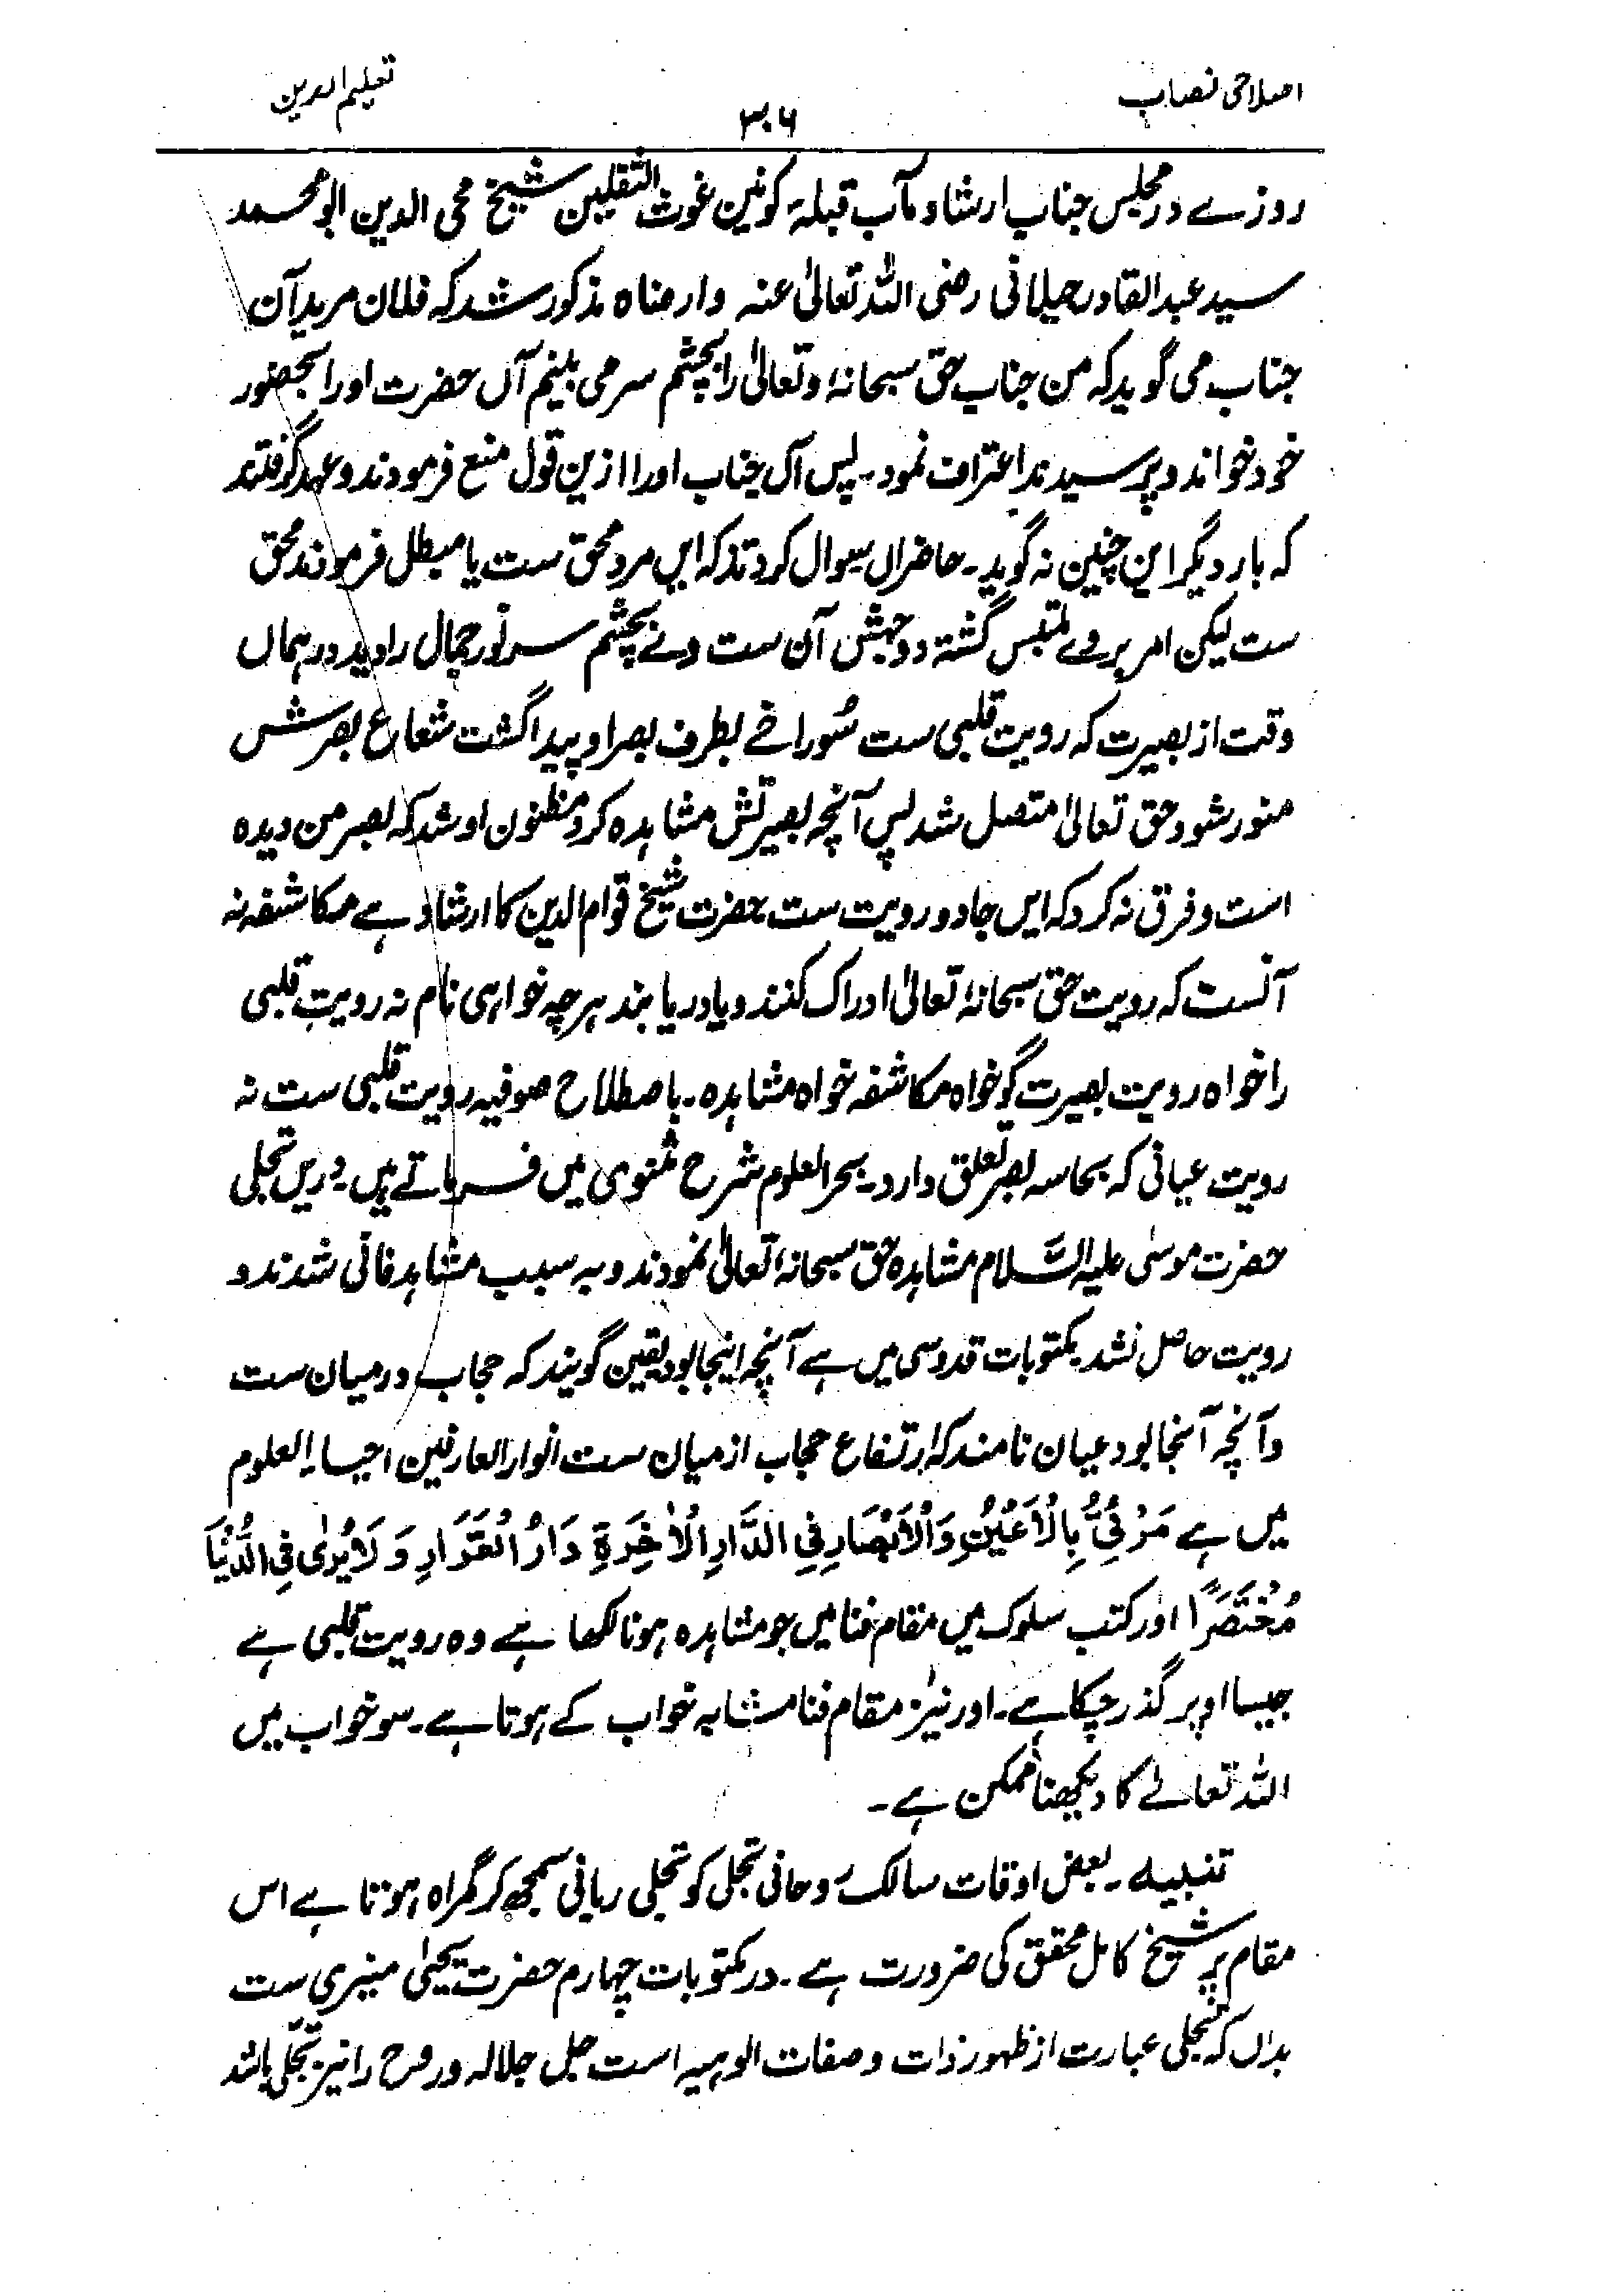 اصلاحی نصاب
۳۰۶
تعلیم الدین
روزے در مجلس جناب ارشاد مآب قبلۂ کونین غوث الثقلین شیخ محی الدین ابو محمد
سید عبد القادر جیلانی رضی اللہ تعالیٰ عنہ وارضاہ مذکور شد کہ فلان مرید آن
جناب می گوید کہ من جناب حق سبحانہٗ و تعالیٰ را بچشم سر می بینم آں حضرت اورا بحضور
خود خواند و پرسید ند اعتراف نمود۔ پس آں جناب اورا ازین قول منع فرمودند و عہد گرفتند
کہ بار دیگر این چنین نہ گوید۔ حاضراں سوال کردند کہ ایں مرد محق ست یا مبطل فرموند محق
ست لیکن امر بر وے ملتبس گشتہ و وجہش آن ست وے بچشم سر نور جمال را دید در ہماں
وقت از بصیرت کہ رویت قلبی ست سُوراخے بطرف بصر او پیدا گشت شعاع بصرش
منور شود حق تعالیٰ متصل شد پس آنچہ بصیرتش مشاہدہ کرد مظنون او شد کہ بصر من دیدہ
است و فرق نہ کرد کہ ایں جا دو رویت ست حضرت شیخ قوام الدین کا ارشاد ہے مکاشفہ نہ
آنست کہ رویت حق سبحانہٗ تعالیٰ ادراک کنند و یا دریابند ہر چہ خواہی نام نہ رویت قلبی
را خواہ رویت بصیرت گو خواہ مکاشفہ خواہ مشاہدہ۔ باصطلاح صوفیہ رویت قلبی ست نہ
رویت عیانی کہ بحاسہ بصر تعلق دارد۔ بحر العلوم شرح مثنوی میں فرماتے ہیں۔ دریں تجلی
حضرت موسیٰ علیہ السَّلام مشاہدہ حق سبحانہٗ تعالیٰ نمودند و بہ سبب مشاہد فانی شدند و
رویت حاصل نشد مکتوبات قدوسی میں ہے آنچہ اینجا بود یقین گویند کہ حجاب درمیان ست
و آنچہ آنجا بود عیان نامند کہ ارتفاع حجاب از میان ست انوار العارفین احیاء العلوم
میں ہے مَرْئِیٌّ بِالْاَعْیُنِ وَالْاَبْصَارِ فِی الدَّارِ الْاٰخِرَةِ دَارُ الْقَرَارِ وَلَا یُرٰی فِی الدُّنْیَا
مُخْتَصَرًا اور کتب سلوک میں مقام فنا میں جو مشاہدہ ہونا لکھا ہے وہ رویت قلبی ہے
جیسا اوپر گذر چکا ہے۔ اور نیز مقام فنا مشابہ خواب کے ہوتا ہے۔ سو خواب میں
اللہ تعالےٰ کا دیکھنا ممکن ہے۔
تنبیہ۔ بعض اوقات سالک روحانی تجلی کو تجلی ربانی سمجھ کر گمراہ ہوتا ہے اس
مقام پر شیخ کامل محقق کی ضرورت ہے۔ در مکتوبات چہارم حضرت یحیٰی منیری ست
بداں کہ تجلی عبارت از ظہور ذات و صفات الوہیہ است جل جلالہ و روح را نیز تجلی باشد